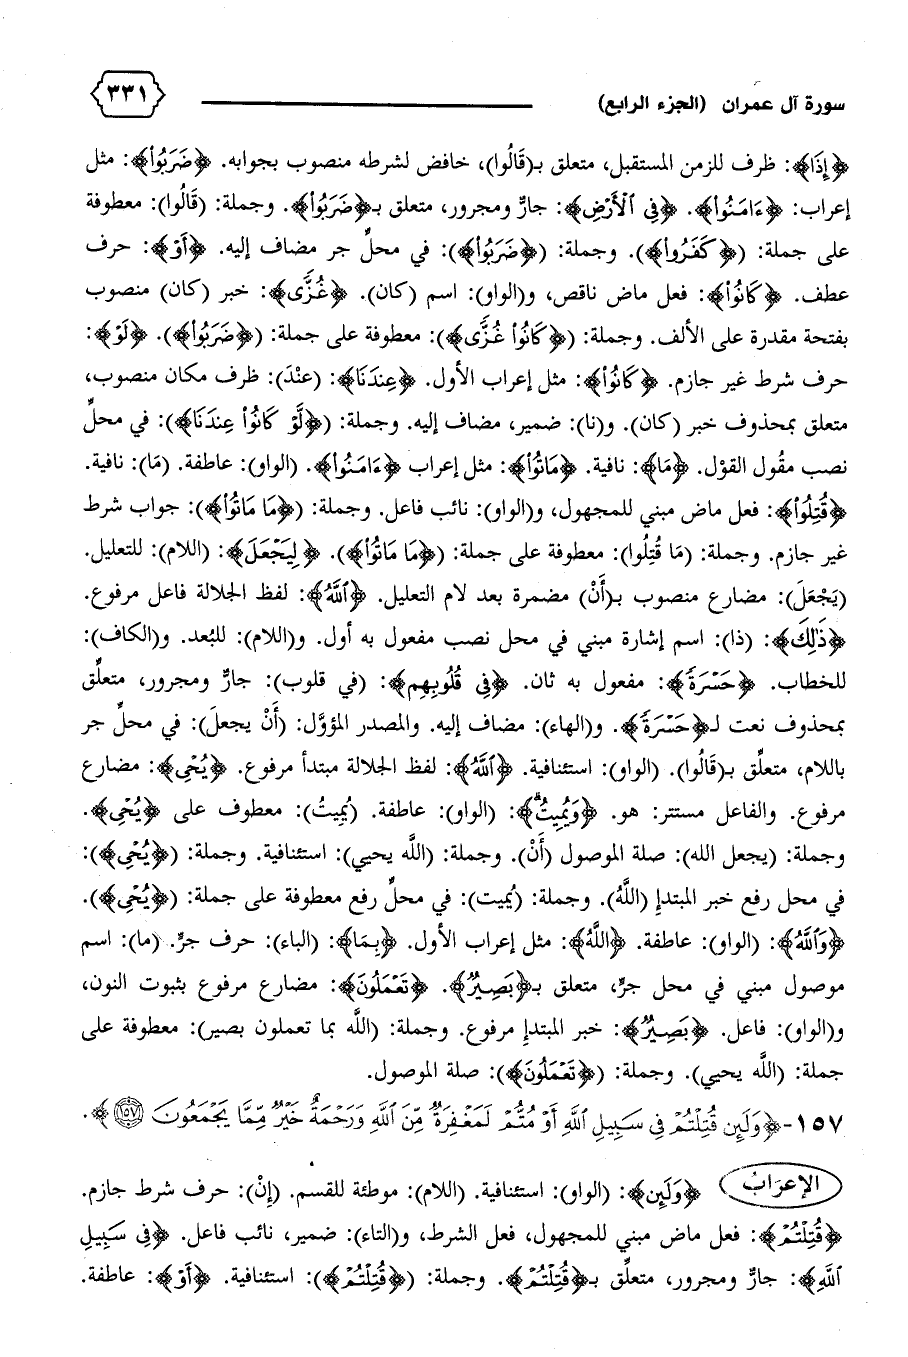 سورة آل عمران (الجزء الرابع)
٣٣١
﴿إِذَا﴾: ظرف للزمن المستقبل، متعلق بـ(قَالُوا)، خافض لشرطه منصوب بجوابه. ﴿ضَرَبُوا۟﴾: مثل
إعراب: ﴿ءَامَنُوا۟﴾. ﴿فِي ٱلْأَرْضِ﴾: جارٌ ومجرور، متعلق بـ﴿ضَرَبُوا۟﴾. وجملة: (قَالُوا): معطوفة
على جملة: (﴿كَفَرُوا۟﴾). وجملة: (﴿ضَرَبُوا۟﴾): في محلِّ جر مضاف إليه. ﴿أَوْ﴾: حرف
عطف. ﴿كَانُوا۟﴾: فعل ماض ناقص، و(الواو): اسم (كان). ﴿غُزًّى﴾: خبر (كان) منصوب
بفتحة مقدرة على الألف. وجملة: (﴿كَانُوا۟ غُزًّى﴾): معطوفة على جملة: (﴿ضَرَبُوا۟﴾). ﴿لَوْ﴾:
حرف شرط غير جازم. ﴿كَانُوا۟﴾: مثل إعراب الأول. ﴿عِندَنَا﴾: (عنْدَ): ظرف مكان منصوب،
متعلق بمحذوف خبر (كان). و(نا): ضمير، مضاف إليه. وجملة: (﴿لَّوْ كَانُوا۟ عِندَنَا﴾): في محلِّ
نصب مقُول القوْل. ﴿مَا﴾: نافية. ﴿مَاتُوا۟﴾: مثل إعراب ﴿ءَامَنُوا۟﴾. (الواو): عاطفة. (مَا): نافية.
﴿قُتِلُوا۟﴾: فعل ماض مبني للمجهول، و(الواو): نائب فاعل. وجملة: (﴿مَا مَاتُوا۟﴾): جواب شرط
غير جازم. وجملة: (مَا قُتِلُوا): معطوفة على جملة: (﴿مَا مَاتُوا۟﴾). ﴿لِيَجْعَلَ﴾: (اللام): للتعليل.
(يَجْعَلَ): مضارع منصوب بـ(أَنْ) مضمرة بعد لام التعليل. ﴿ٱللَّهُ﴾: لفظ الجلالة فاعل مرفوع.
﴿ذَٰلِكَ﴾: (ذا): اسم إشارة مبني في محل نصب مفعول به أول. و(اللام): للبُعد. و(الكاف):
للخطاب. ﴿حَسْرَةً﴾: مفعول به ثان. ﴿فِي قُلُوبِهِمْ﴾: (في قلوب): جارٌ ومجرور، متعلِّق
بمحذوف نعت لـ﴿حَسْرَةً﴾. و(الهاء): مضاف إليه. والمصدر المؤوَّل: (أَنْ يجعلَ): في محلِّ جر
باللام، متعلِّق بـ(قَالُوا). (الواو): استئنافية. ﴿ٱللَّهُ﴾: لفظ الجلالة مبتدأ مرفوع. ﴿يُحْىِۦ﴾: مضارع
مرفوع. والفاعل مستتر: هو. ﴿وَيُمِيتُ﴾: (الواو): عاطفة. (يُمِيتُ): معطوف على ﴿يُحْىِۦ﴾.
وجملة: (يجعل الله): صلة الموصول (أَنْ). وجملة: (اللَّه يحيي): استئنافية. وجملة: (﴿يُحْىِۦ﴾):
في محل رفع خبر المبتدإ (اللَّهُ). وجملة: (يُميت): في محلِّ رفع معطوفة على جملة: (﴿يُحْىِۦ﴾).
﴿وَٱللَّهُ﴾: (الواو): عاطفة. ﴿اللَّهُ﴾: مثل إعراب الأول. ﴿بِمَا﴾: (الباء): حرف جرٍّ. (ما): اسم
موصول مبني في محل جرٍّ، متعلق بـ﴿بَصِيرٌ﴾. ﴿تَعْمَلُونَ﴾: مضارع مرفوع بثبوت النون،
و(الواو): فاعل. ﴿بَصِيرٌ﴾: خبر المبتدإ مرفوع. وجملة: (اللَّه بما تعملون بصير): معطوفة على
جملة: (اللَّه يحيي). وجملة: (﴿تَعْمَلُونَ﴾): صلة الموصول.
١٥٧-﴿وَلَئِن قُتِلْتُمْ فِي سَبِيلِ ٱللَّهِ أَوْ مُتُّمْ لَمَغْفِرَةٌ مِّنَ ٱللَّهِ وَرَحْمَةٌ خَيْرٌ مِّمَّا يَجْمَعُونَ ١٥٧﴾.
الإعرَابُ ﴿وَلَئِن﴾: (الواو): استئنافية. (اللام): موطئة للقسم. (إِنْ): حرف شرط جازم.
﴿قُتِلْتُمْ﴾: فعل ماض مبني للمجهول، فعل الشرط، و(التاء): ضمير، نائب فاعل. ﴿فِي سَبِيلِ
ٱللَّهِ﴾: جارٌ ومجرور، متعلِّق بـ﴿قُتِلْتُمْ﴾. وجملة: (﴿قُتِلْتُمْ﴾): استئنافية. ﴿أَوْ﴾: عاطفة.